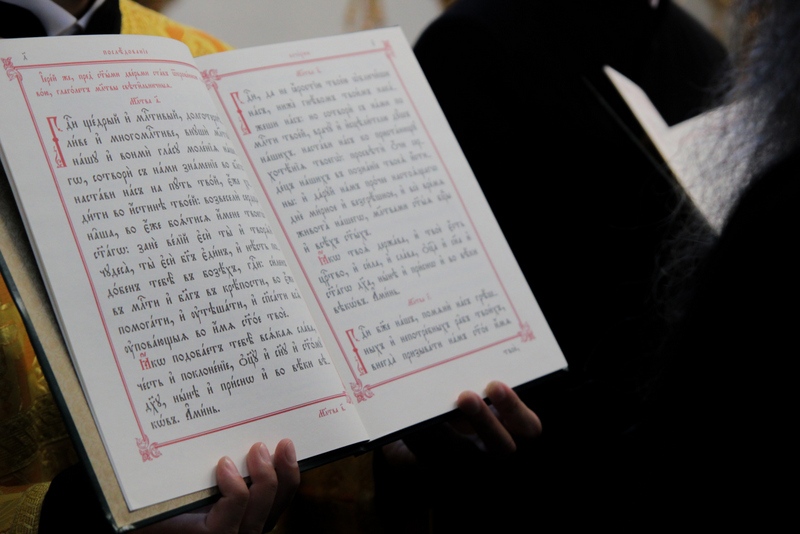 послѣ́дованїе
мл҃твы свѣти́льничныѧ.
Мл҃тва а҃.
Гдⷭ҇и ще́дрый и҆ млⷭ҇тивый, долготерпѣ-
ли́ве и҆ многомлⷭ҇тиве, внꙋшѝ мл҃твꙋ
на́шꙋ и҆ вонмѝ гла́сꙋ моле́нїѧ на́ше-
гѡ, сотворѝ съ на́ми зна́менїе во
наста́ви на́съ на пꙋ́ть тво́й, є҆́же
ди́ти во и҆́стинѣ твое́й: возвеселѝ
на̑ша, во є҆́же боѧ́тисѧ и҆́мене твоегѡ̀
ст҃а́гѡ: занѐ ве́лїй є҆сѝ ты̀ и҆ творѧ́й
чꙋдеса̀, ты̀ є҆сѝ бг҃ъ є҆ди́нъ, и҆ нѣ́сть по-
до́бенъ тебѣ̀ въ бозѣ́хъ, гдⷭ҇и: си́ленъ
въ млⷭ҇ти и҆ бл҃гъ въ крѣ́пости, во є҆́же
помога́ти, и҆ ᲂу҆тѣша́ти, и҆ сп҃са́ти всѧ̑
ᲂу҆пова́ющыѧ во и҆́мѧ ст҃о́е твоѐ.
Ꙗ҆́кѡ подоба́етъ тебѣ̀ всѧ́каѧ сла́ва,
че́сть и҆ поклоне́нїе, ѻ҆ц҃ꙋ̀ и҆ сн҃ꙋ и҆ ст҃о́мꙋ
дх҃ꙋ, ны́нѣ и҆ при́снѡ и҆ во вѣ́ки вѣ-
кѡ́въ. А҆ми́нь.
Мл҃тва в҃.
Мл҃тва в҃.
Гдⷭ҇и, да не ꙗ҆́ростїю твое́ю ѡ҆бличи́ши
на́съ, нижѐ гнѣ́вомъ твои́мъ нака́-
жеши на́съ: но сотворѝ съ на́ми по
млⷭ҇ти твое́й, врачꙋ̀ и҆ и҆сцѣли́телю дꙋ́шъ
на́шихъ. наста́ви на́съ ко приста́нищꙋ
хотѣ́нїѧ твоегѡ̀: просвѣтѝ ѻ҆́чи сер-
де́цъ на́шихъ въ позна́нїе твоеѧ̀ и҆́сти-
ны: и҆ да́рꙋй на́мъ про́чее настоѧ́щагѡ
днѐ ми́рное и҆ безгрѣ́шное, и҆ всѐ вре́мѧ
живота̀ на́шегѡ, мл҃твами ст҃ы́ѧ бцⷣы
и҆ всѣ́хъ ст҃ы́хъ.
Ꙗ҆́кѡ твоѧ̀ держа́ва, и҆ твоѐ є҆́сть
црⷭ҇тво, и҆ си́ла, и҆ сла́ва, ѻ҆ц҃а̀ и҆ сн҃а и҆
ст҃а́гѡ дх҃а, ны́нѣ и҆ при́снѡ и҆ во вѣ́ки
вѣкѡ́въ. А҆ми́нь.
Мл҃тва г҃.
Гдⷭ҇и бж҃е на́шъ, помѧнѝ на́съ грѣ́ш-
ныхъ и҆ непотре́бныхъ ра̑бъ твои́хъ,
внегда̀ призыва́ти на́мъ ст҃о́е и҆́мѧ
твоѐ,